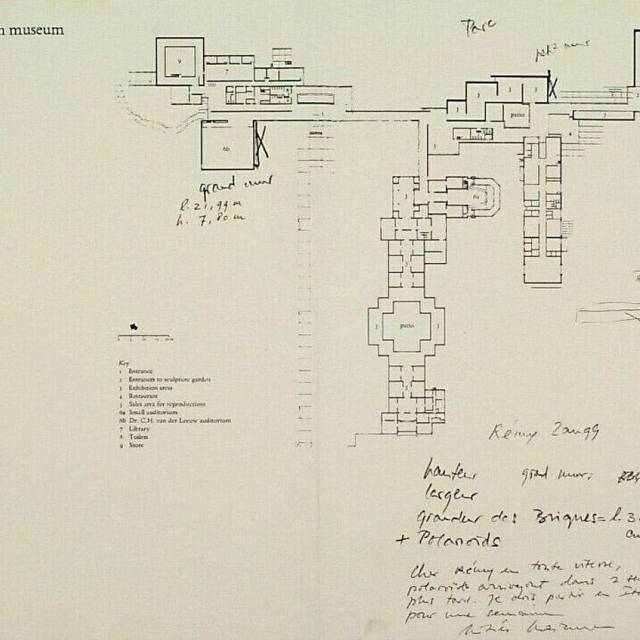 museum
Parc
petit mur
9
7
6b
patio
grand mur
l. 21,99 m
h. 7,80 m
patio
Key
1 Entrance
2 Entrances to sculpture garden
3 Exhibition areas
4 Restaurant
5 Sales area for reproductions
6a Small auditorium
6b Dr. C.H. van der Leeuw auditorium
7 Library
8 Toilets
9 Store
Rémy Zaugg
hauteur grand mur:
largeur
grandeur des Briques = l. 3.
+ Polaroïds
Cher Rémy en toute vitesse,
polaroïds arriveront dans 2
plus tard. Je dois partir en
pour une semaine